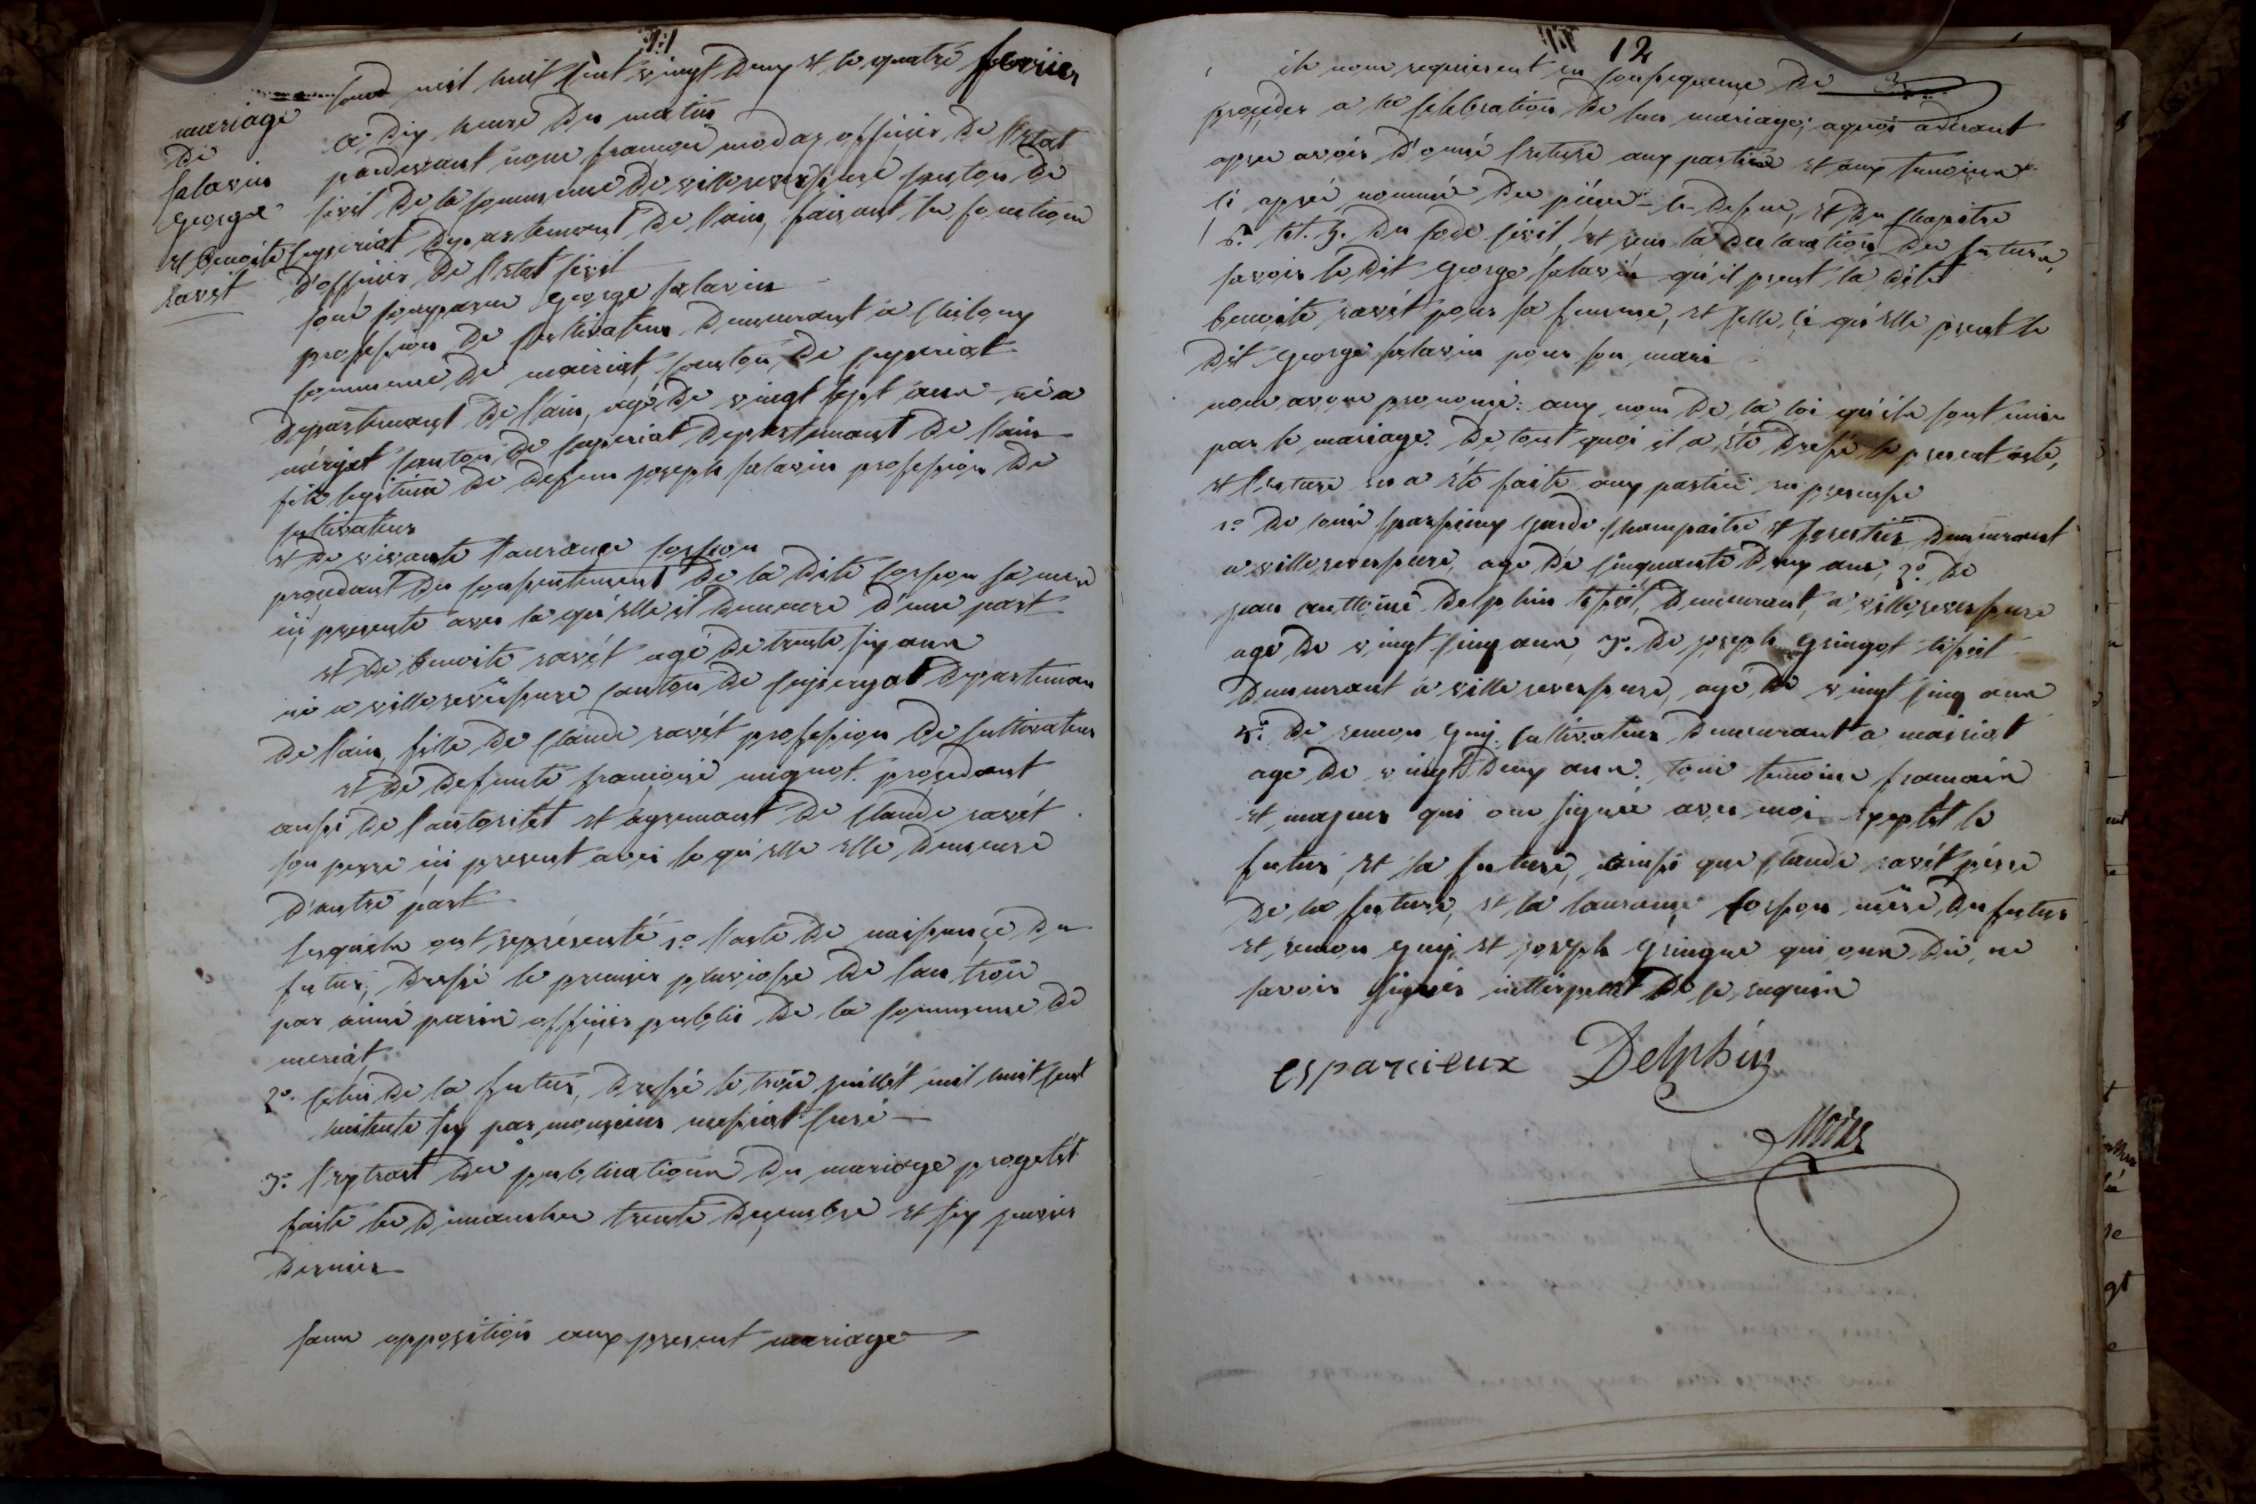 mariage
de
salavin
george
et benoite
ravet
l'an mil huit cent vingt deux et le quatre fevrier
a dix heure du matin
pardevant nous françois modas officier de l'etat
sivil de la commune de villereversure canton de
ceyseriat departement de l'ain, faisant les fonctions
d'officier de l'etat sivil
sont comparus george salavin
profession de cultivateur demeurant a
commune de meiriat canton de ceyseriat
departement de l'ain, agé de vingt sept ans né a
canton de ceyseriat departement de l'ain
fils legitime de defunt joseph salavin profession de
cultivateur
et de vivante laurance
procedant du consentement de la dite sa mere
ici presente avec la qu'elle il demeure d'une part
et de benoite ravét agé de trente six ans
né a villereversure canton de departement
de l'ain, fille de claude ravét profession de cultivateur
et de defunte françoise mignot. procedant
aussi de l'autoritét et agremant de claude ravét
son perre ici present avec le qu'elle elle demeure
d'autre part
lesquels ont représenté 1º l'acte de naissance du
futur, dressé le premier pluviose de l'an trois
par aimé officier public de la commune de
meriat
2º. celui de la futur, dressé le trois juillét mil huit cent
par monsieur curé
3º. l'extrait des publications du mariage progetét
faite les dimanches trente decembre et six janvier
dernier
sans opposition aux present mariage
12
ils nous requierent en consequence de
proceder a la celebration de leur mariage; aquoi adérant
apres avois d'onné lecture aux parties et aux temoins
ci aprés nommé des piéces ci desus, et du chapitre
6. tit. 5. du code sivil, et sur la declaration des futurs,
savoir le dit george salavin qu'il prent la ditet
benoite ravét pour sa femme, et celle ci qu'elle prent le
dit george salavin pour son mari
nous avons prononcé: aux nom de la loi qu'ils sont unis
par le mariage. de tout quoi il a été dressé le present acte,
et lecture en a été faite aux parties en presense
1º de louis garde champaitre et forestier demeurant
a villereversure, age de sinquante deux ans, 2º. de
jean anttoine delphin demeurant a villereversure
age de vingt sinq ans, 3º. de joseph gringot
demeurant a villereversure, age de vingt sinq ans
4º. de remon guy cultivateur demeurant a meiriat
age de vingt deux ans. tous temoins framais
et majeur qui ons signeé avec moi exeptét le
futur, et la future, ainsi que claude ravét pérre
de la future, et la laurance mére du futur
et remon guy et joseph gringue qui ons dit ne
savoir signer de se requis
esparcieux Delphin